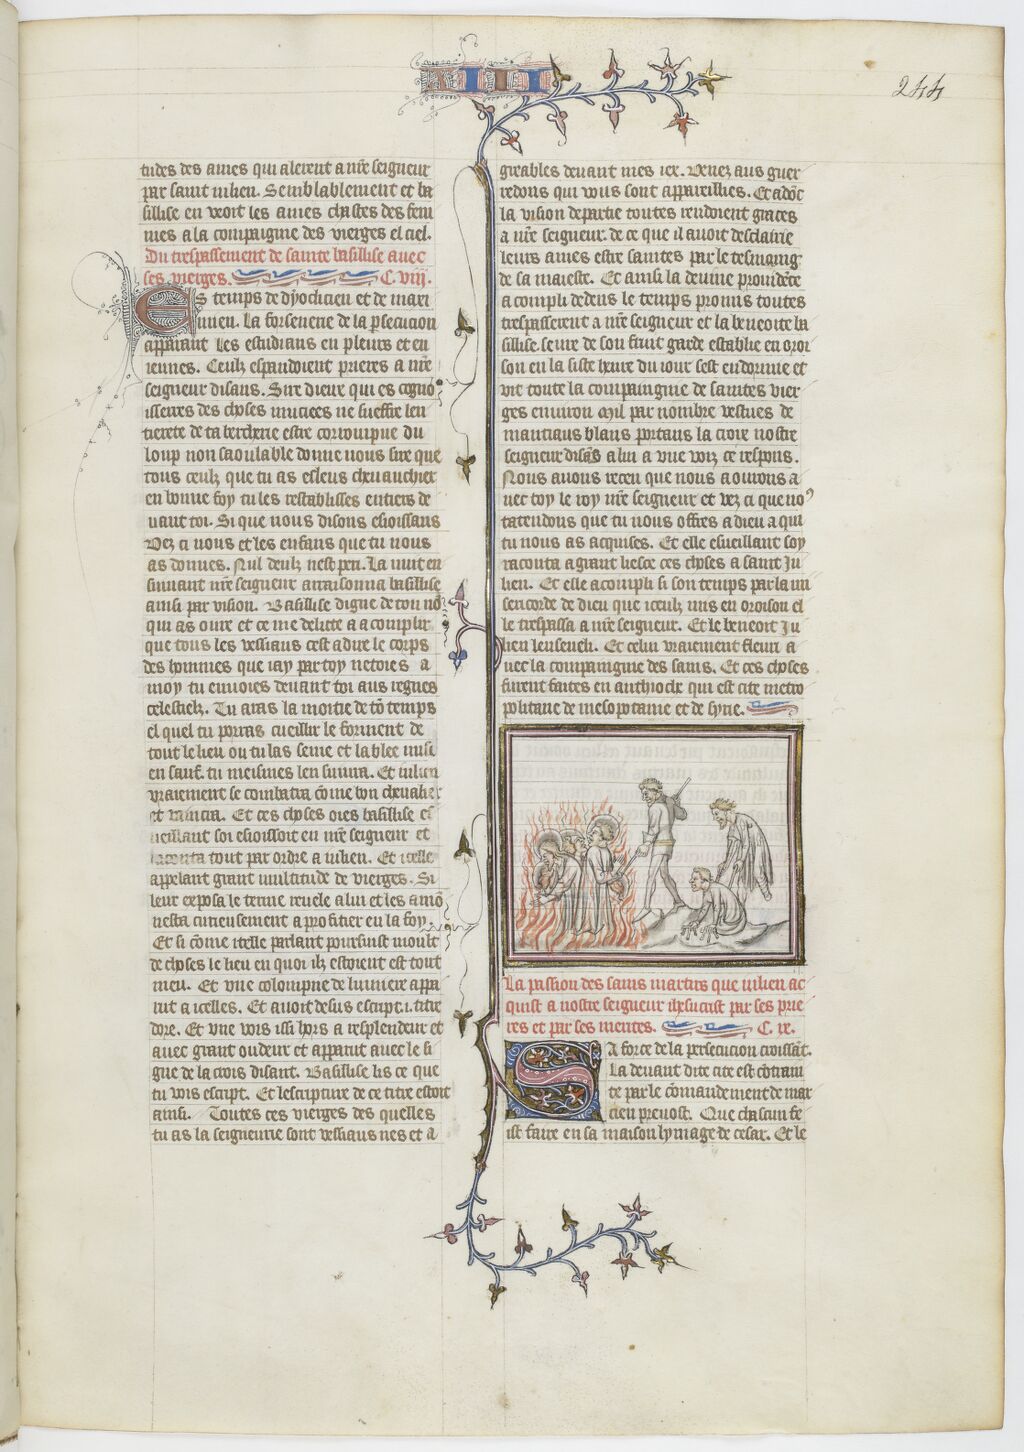 244
tudes des ames qui alerent a nr̃e seigneur
par saint iulien. Semblablement et ba
sillise en veoit les ames chastes des fem
mes a la compaignie des vierges el ciel.
Du trespassement de sainte basillise auec
ses vierges. C. viij.
Es temps de dyoclicien et de maxi
mien. La forsenerie de la p̱secucion
apparant les estudians en pleurs et en
ieunes. Ceulz espandoient prieres a nr̃e
seigneur disans. Sire dieux qui es cogno
isseres des choses muciees ne sueffre len
tierete de ta bercherie estre corrompue du
loup non saoulable donne nous sire que
tous ceulz que tu as esleus cheuauchier
en bonne foy tu les restablisses entiers de
uant toi. Si que nous disons esioissans
Vez ci nous et les enfans que tu nous
as donnes. Nul deulz nest peri. La nuit en
suiuant nr̃e seigneur arraisonna basillise
ainsi par vision. Basillise digne de ton nõ
qui as oure et ce me delicte a acomplir
que tous les vessiaus cest a dire le corps
des hommes que iay par toy netoies a
moy tu enuoies deuant toi aus regnes
celestielz. Tu aras la moitie de tõ temps
el quel tu porras cueillir le forment de
tout le lieu ou tu las seme et la blee mise
en sauf. tu meismes len suiura. Et iulien
vraiement se combatra cõme bon cheualier
et vaincra. Et ces choses oies basillise es
ueillant soi esioissoit en nr̃e seigneur et
raconta tout par ordre a iulien. Et icelle
appelant grant multitude de vierges. Si
leur exposa le terme reuele a lui et les amõ
nesta curieusement a profitier en la foy.
Et si cõme icelle parlant poursuist moult
de choses le lieu en quoi ilz estoient est tout
meu. Et vne colompne de lumiere appa
rut a icelles. Et auoit desus escript .i. titre
dore. Et vne vois issi hors a resplendeur et
auec grant oudeur et apparut auec le si
gne de la crois disant. Basillise lis ce que
tu vois escript. Et lescripture de ce titre estoit
ainsi. Toutes ces vierges des quelles
tu as la seigneurie sont vessiaus nes et a
greables deuant mes iex. Venez aus guer
redons qui vous sont appareillies. Et adõc
la vision departie toutes rendoient graces
a nr̃e seigneur. de ce que il auoit desclairie
leurs ames estre saintes par le tesmoing
de sa maieste. Et ainsi la deuine prouidẽce
a compli dedens le temps promis toutes
trespasserent a nr̃e seigneur et la beneoite ba
sillise. seure de son fruit garde establie en oroi
son en la siste heure du iour sest endormie et
vit toute la compaingnie de saintes vier
ges enuiron mil par nombre vestues de
mantiaus blans portans la croix nostre
seigneur disãs a lui a vne voiz ce respons.
Nous auons receu que nous aourons a
uec toy le roy nr̃e seigneur et vez ci que noꝰ
tatendons que tu nous offres a dieu a qui
tu nous as acquises. Et elle esueillant soy
raconta a grant liesce ces choses a saint Ju
lien. Et elle acompli si son temps par la mi
sericorde de dieu que iceulz mis en oroison el
le trespassa a nr̃e seigneur. Et le beneoit Ju
lien lenseueli. Et celui vraiement fleuri a
uec la compaingnie des sains. Et ces choses
furent faites en anthioche qui est cite metro
politaine de mesopotamie et de syrie.
La passion des sains martirs que iulien ac
quist a nostre seigneur ihesucrist par ses prie
res et par ses merites. C. ix.
La force de la persecucion croissãt.
La deuant dite cite est cõtrain
te par le cõmandement de mar
cien preuost. Que chascun fe
ist faire en sa maison lymage de cesar. Et le